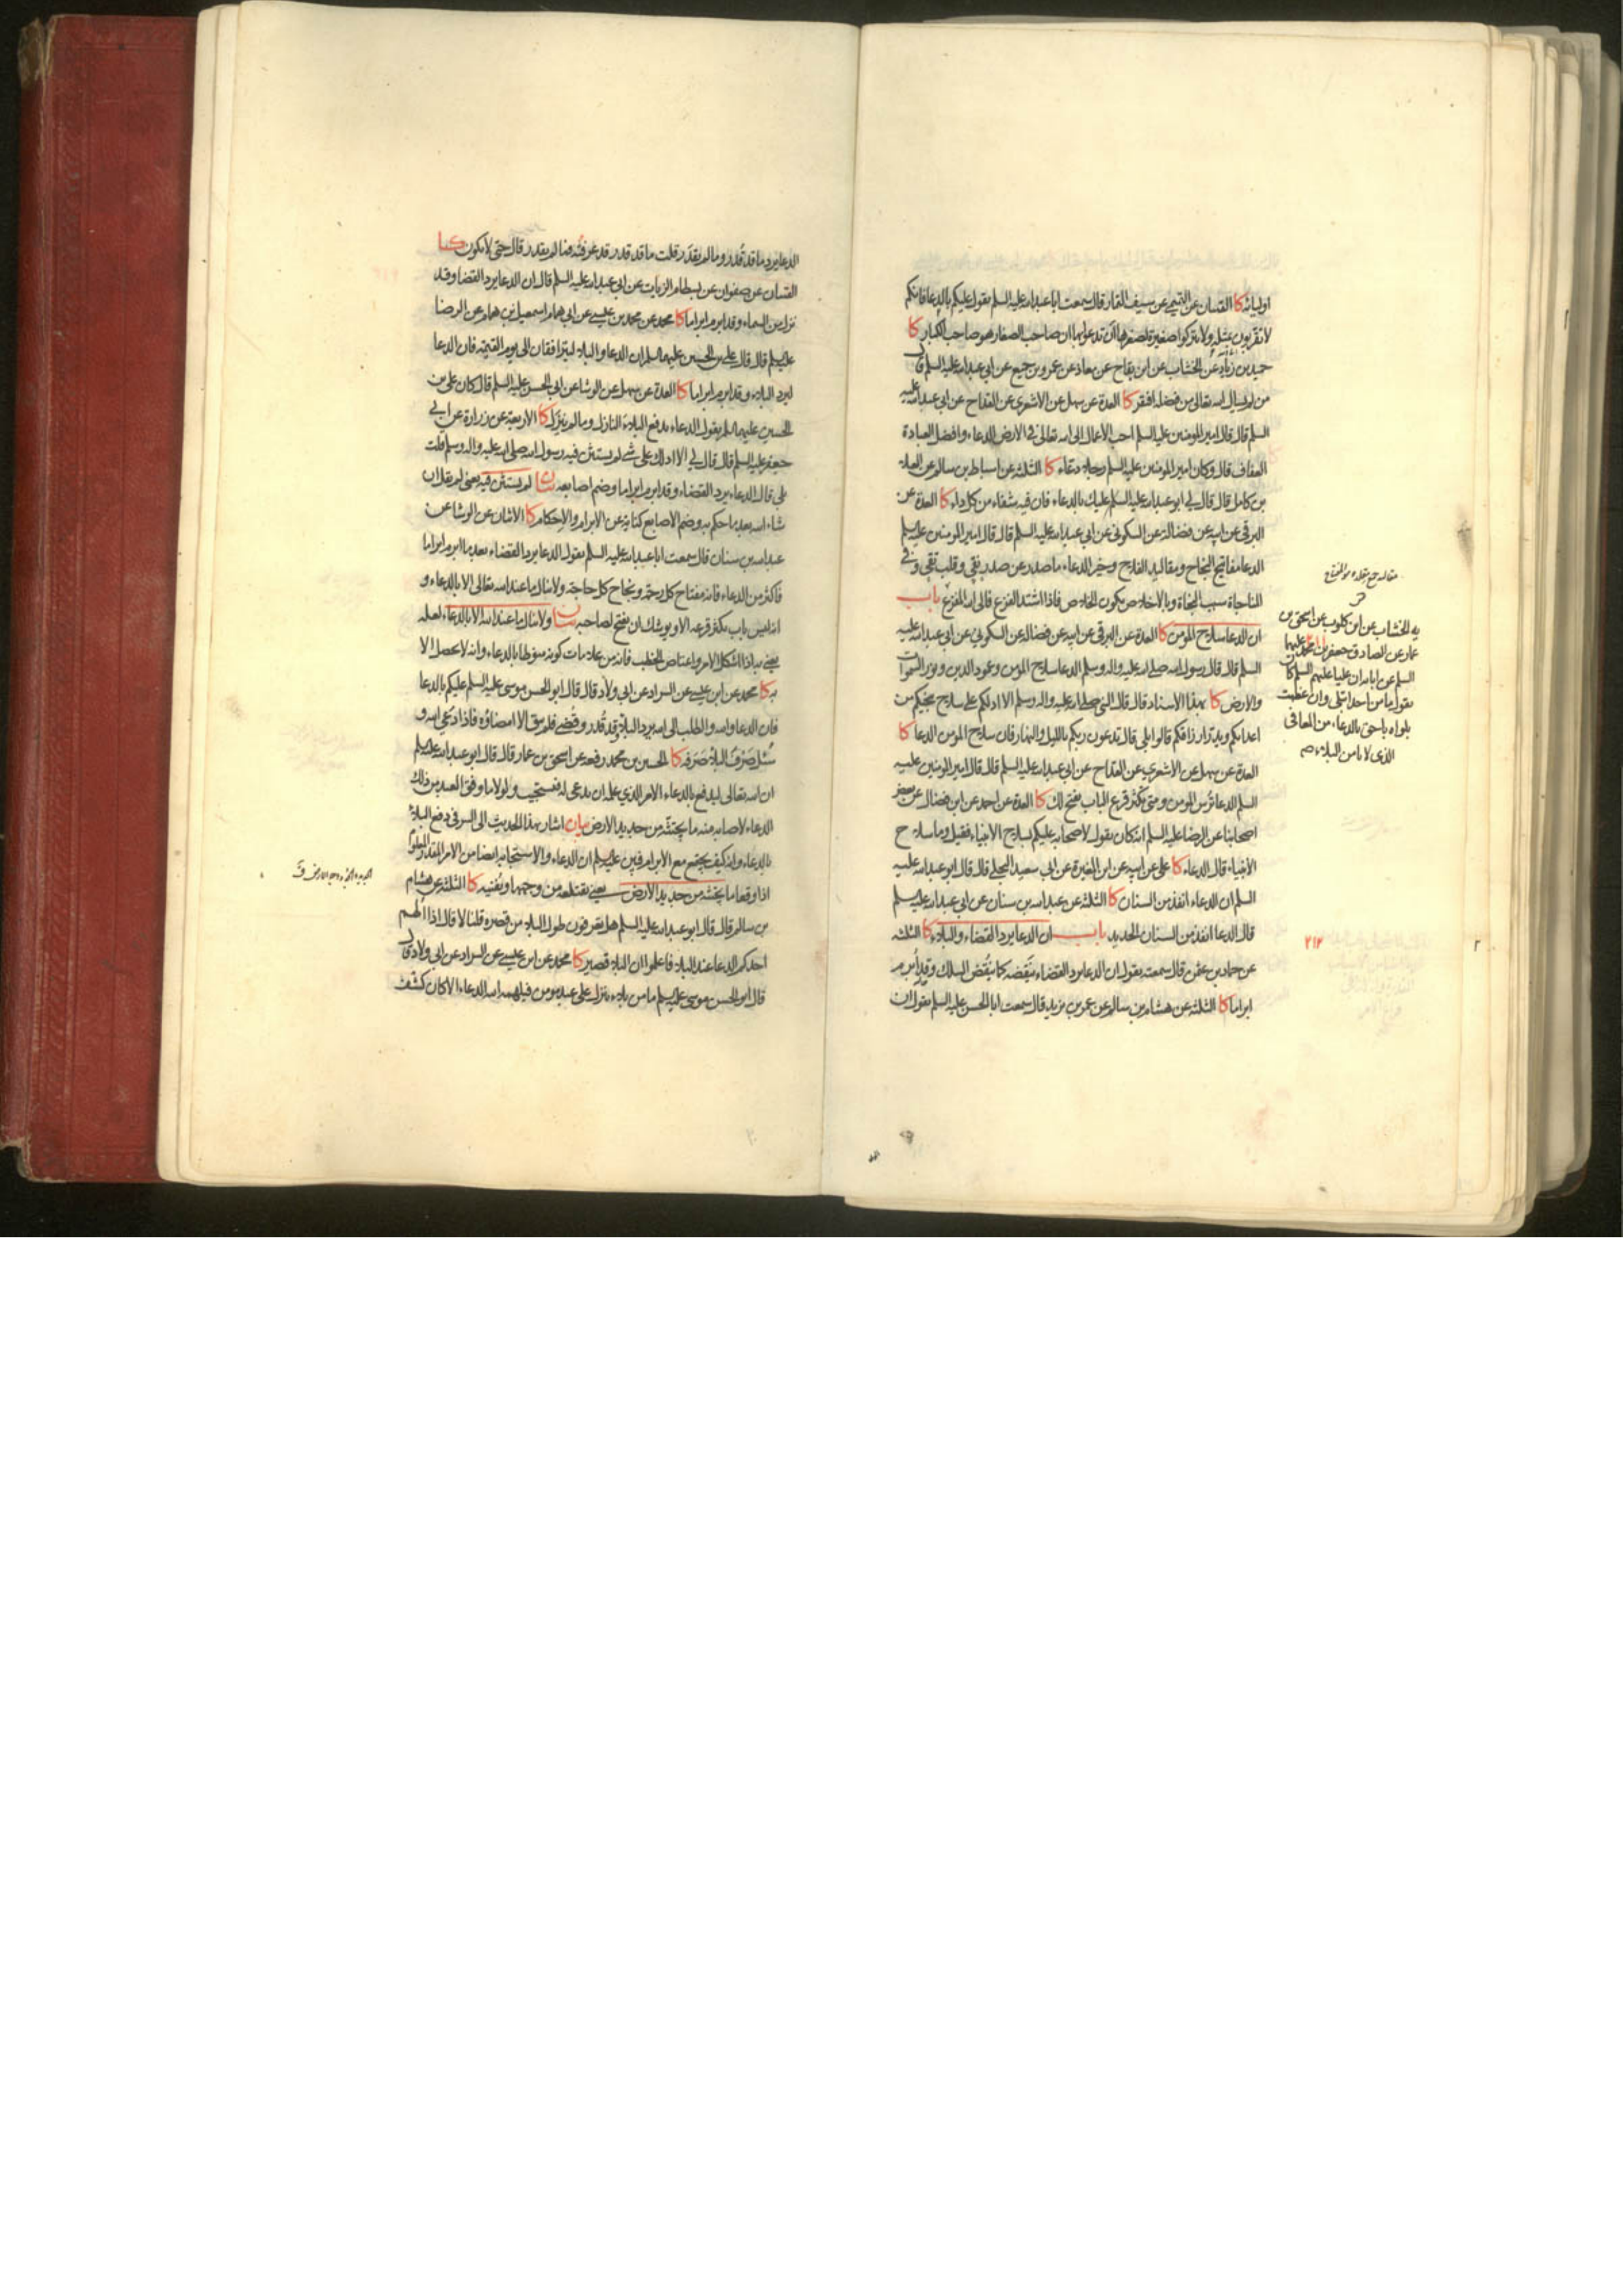 اوليائه كا القميان عن التميمي عن سيف التمار قال سمعت ابا عبدالله عليه السلم يقول عليكم بالدعا فانكم
لا تقربون بمثله ولا تتركوا صغيرة لصغرها ان تدعوا بها ان صاحب الصغار هو صاحب الكبار كا
حميد بن زياد عن الخشاب عن ابن بقاح عن معاذ عن عمرو بن جميع عن ابي عبدالله عليه السلم قال
من لم يسال الله تعالى من فضله افتقر كا العدة عن سهل عن الاشعري عن القداح عن ابي عبدالله عليه
السلم قال قال امير المومنين عليه السلم احب الاعمال الى الله تعالى في الارض الدعاء وافضل العبادة
العفاف قال وكان امير المومنين عليه السلم رجلا دعاء كا الثلثة عن اسباط بن سالم عن العلا
بن كامل قال قال لي ابو عبدالله عليه السلم عليك بالدعاء فان فيه شفاء من كل داء كا العدة عن
البرقي عن ابيه عن فضالة عن السكوني عن ابي عبدالله عليه السلم قال قال امير المومنين عليه السلم
الدعا مفاتيح النجاح ومقاليد الفلاح وخير الدعاء ما صدر عن صدر نقي وقلب تقي وفي
المناجاة سبب النجاة وبالاخلاص يكون الخلاص فاذا اشتد الفزع فالى الله المفزع باب
ان الدعا سلاح المومن كا العدة عن البرقي عن ابيه عن فضالة عن السكوني عن ابي عبدالله عليه
السلم قال قال رسول الله صلى الله عليه واله وسلم الدعا سلاح المومن وعمود الدين ونور السموات
والارض كا بهذا الاسناد قال قال النبي صلى الله عليه واله وسلم الا ادلكم على سلاح ينجيكم من
اعدائكم ويدر ارزاقكم قالوا بلى قال تدعون ربكم بالليل والنهار فان سلاح المومن الدعا كا
العدة عن سهل عن الاشعري عن القداح عن ابي عبدالله عليه السلم قال قال امير المومنين عليه
السلم الدعا ترس المومن ومتى تكثر قرع الباب يفتح لك كا العدة عن احمد عن ابن فضال عن بعض
اصحابنا عن الرضا عليه السلم انه كان يقول لاصحابه عليكم بسلاح الانبياء فقيل وما سلاح
الانبياء قال الدعاء كا علي عن ابيه عن ابن المغيرة عن ابي سعيد البجلي قال قال ابو عبدالله عليه
السلم ان الدعاء انفذ من السنان كا الثلثة عن عبدالله بن سنان عن ابي عبدالله عليه السلم
قال الدعا انفذ من السنان الحديد باب ان الدعا يرد القضاء والبلاء كا الثلثة
عن حماد بن عثمن قال سمعته يقول ان الدعا يرد القضاء ينقضه كما ينقض السلك وقد ابرم
ابراما كا الثلثة عن هشام بن سالم عن عمر بن يزيد قال سمعت ابا الحسن عليه السلم يقول ان
يه الخشاب عن ابن كلوب عن اسحق بن
عمار عن الصادق جعفر بن محمد عليهما
السلم عن ابائه ان عليا عليهم السلم كان
يقول ما من احد ابتلي وان عظمت
بلواه باحق بالدعاء من المعافى
الذي لا يامن البلاء
٢١٢
الدعا يرد ما قد قدر وما لم يقدر قلت ما قد قدر قد عرفته فما لم يقدر قال حتى لا يكون كا
القميان عن صفوان عن بسطام الزيات عن ابي عبدالله عليه السلم قال ان الدعا يرد القضا وقد
نزل من السماء وقد ابرم ابراما كا محمد عن محمد بن عيسى عن ابي همام اسمعيل بن همام عن الرضا
عليه السلم قال قال علي بن الحسين عليهما السلم ان الدعا والبلاء ليترافقان الى يوم القيمة فان الدعا
ليرد البلاء وقد ابرم ابراما كا العدة عن سهل عن الوشا عن ابي الحسن عليه السلم قال كان علي بن
الحسين عليهما السلم يقول الدعاء يدفع البلاء النازل وما لم ينزل كا الاربعة عن زرارة عن ابي
جعفر عليه السلم قال قال لي الا ادلك على شي لم يستثن فيه رسول الله صلى الله عليه واله وسلم قلت
بلى قال الدعاء يرد القضاء وقد ابرم ابراما وضم اصابعه بيان لم يستثن فيه يعني لم يقل ان
شاء الله بعد ما حكم به وضم الاصابع كناية عن الابرام والاحكام كا الاثنان عن الوشا عن
عبدالله بن سنان قال سمعت ابا عبدالله عليه السلم يقول الدعا يرد القضاء بعد ما ابرم ابراما
فاكثر من الدعاء فانه مفتاح كل رحمة ونجاح كل حاجة ولا ينال ما عند الله تعالى الا بالدعاء و
انه ليس باب يكثر قرعه الا ويوشك ان يفتح لصاحبه بيان ولا ينال ما عند الله الا بالدعاء لعله
يعني به اذا اشكل الامر واعتاص الخطب فانه من علامات كونه منوطا بالدعاء وانه لا يحصل الا
به كا محمد عن ابن عيسى عن السراد عن ابي ولاد قال قال ابو الحسن موسى عليه السلم عليكم بالدعا
فان الدعا والله والطلب الى الله يرد البلاء وقد قدر وقضي فلم يبق الا امضاؤه فاذا دعي الله و
سئل صرف البلاء صرفه كا الحسين بن محمد رفعه عن اسحق بن عمار قال قال ابو عبدالله عليه السلم
ان الله تعالى ليدفع بالدعاء الامر الذي علمه ان يدعى له فيستجيب ولولا ما وفق العبد من ذلك
الدعاء لاصابه منه ما يجتثه من جديد الارض بيان اشار بهذا الحديث الى السر في دفع البلاء
بالدعاء وانه كيف يجتمع مع الابرام فبين عليه السلم ان الدعاء والاستجابة ايضا من الامر المقدر المعلوم
اذا وقعا ما يجتثه من جديد الارض يعني يقتلعه من وجهها ويفنيه كا الثلثة عن هشام
بن سالم قال قال ابو عبدالله عليه السلم هل تعرفون طول البلاء من قصره قلنا لا قال اذا الهم
احدكم الدعا عند البلاء فاعلموا ان البلاء قصير كا محمد عن ابن عيسى عن السراد عن ابي ولاد قال
قال ابو الحسن موسى عليه السلم ما من بلاء ينزل على عبد مومن فيلهمه الله الدعاء الا كان كشف